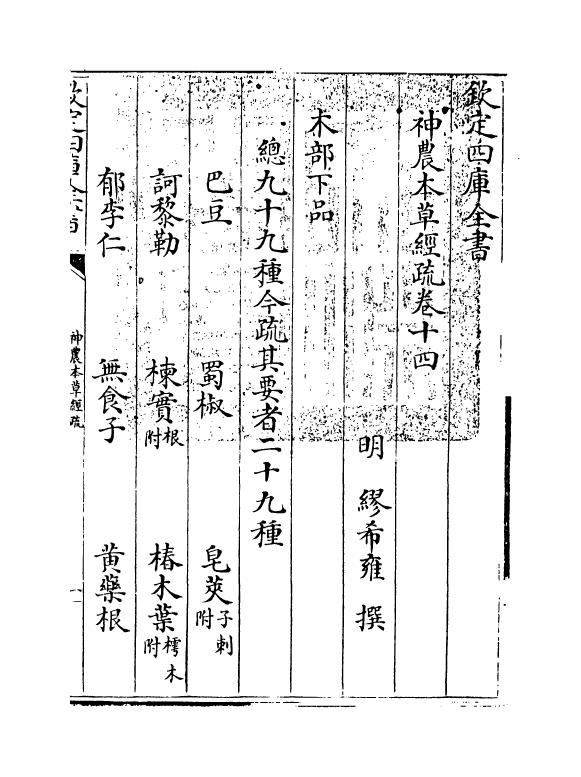 欽定四庫全書
神農本草經疏卷十四
明 繆希雍 撰
木部下品
總九十九種今疏其要者二十九種
巴豆 蜀椒 皂莢子刺附
訶黎勒 楝實根附 椿木葉樗木附
郁李仁 無食子 黄藥根
欽定四庫全書
神農本草經疏